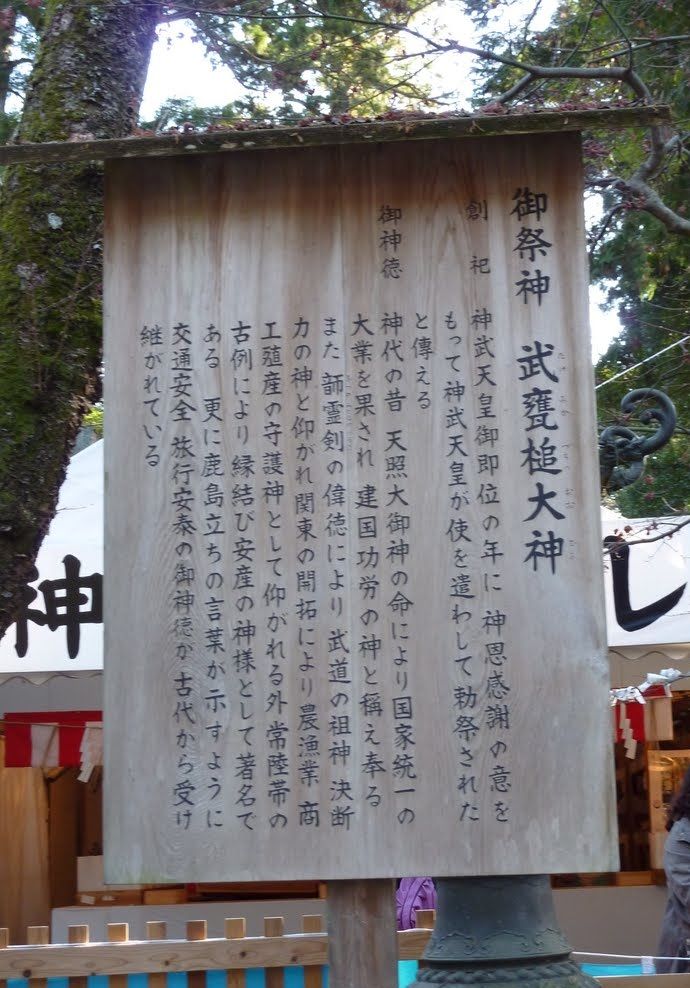 御祭神 武甕槌大神
たけ みか づちの おお かみ
創祀 神武天皇御即位の年に 神恩感謝の意を
もって神武天皇が使を遣わして勅祭された
と傳える
御神徳 神代の昔 天照大御神の命により国家統一の
大業を果され 建国功労の神と稱え奉る
また 韴霊剣の偉徳により 武道の祖神 決断
力の神と仰がれ関東の開拓により農漁業 商
工殖産の守護神として仰がれる外 常陸帯の
古例により縁結び安産の神様として著名で
ある 更に鹿島立ちの言葉が示すように
交通安全 旅行安泰の御神徳が古代から受け
継がれている
神
し